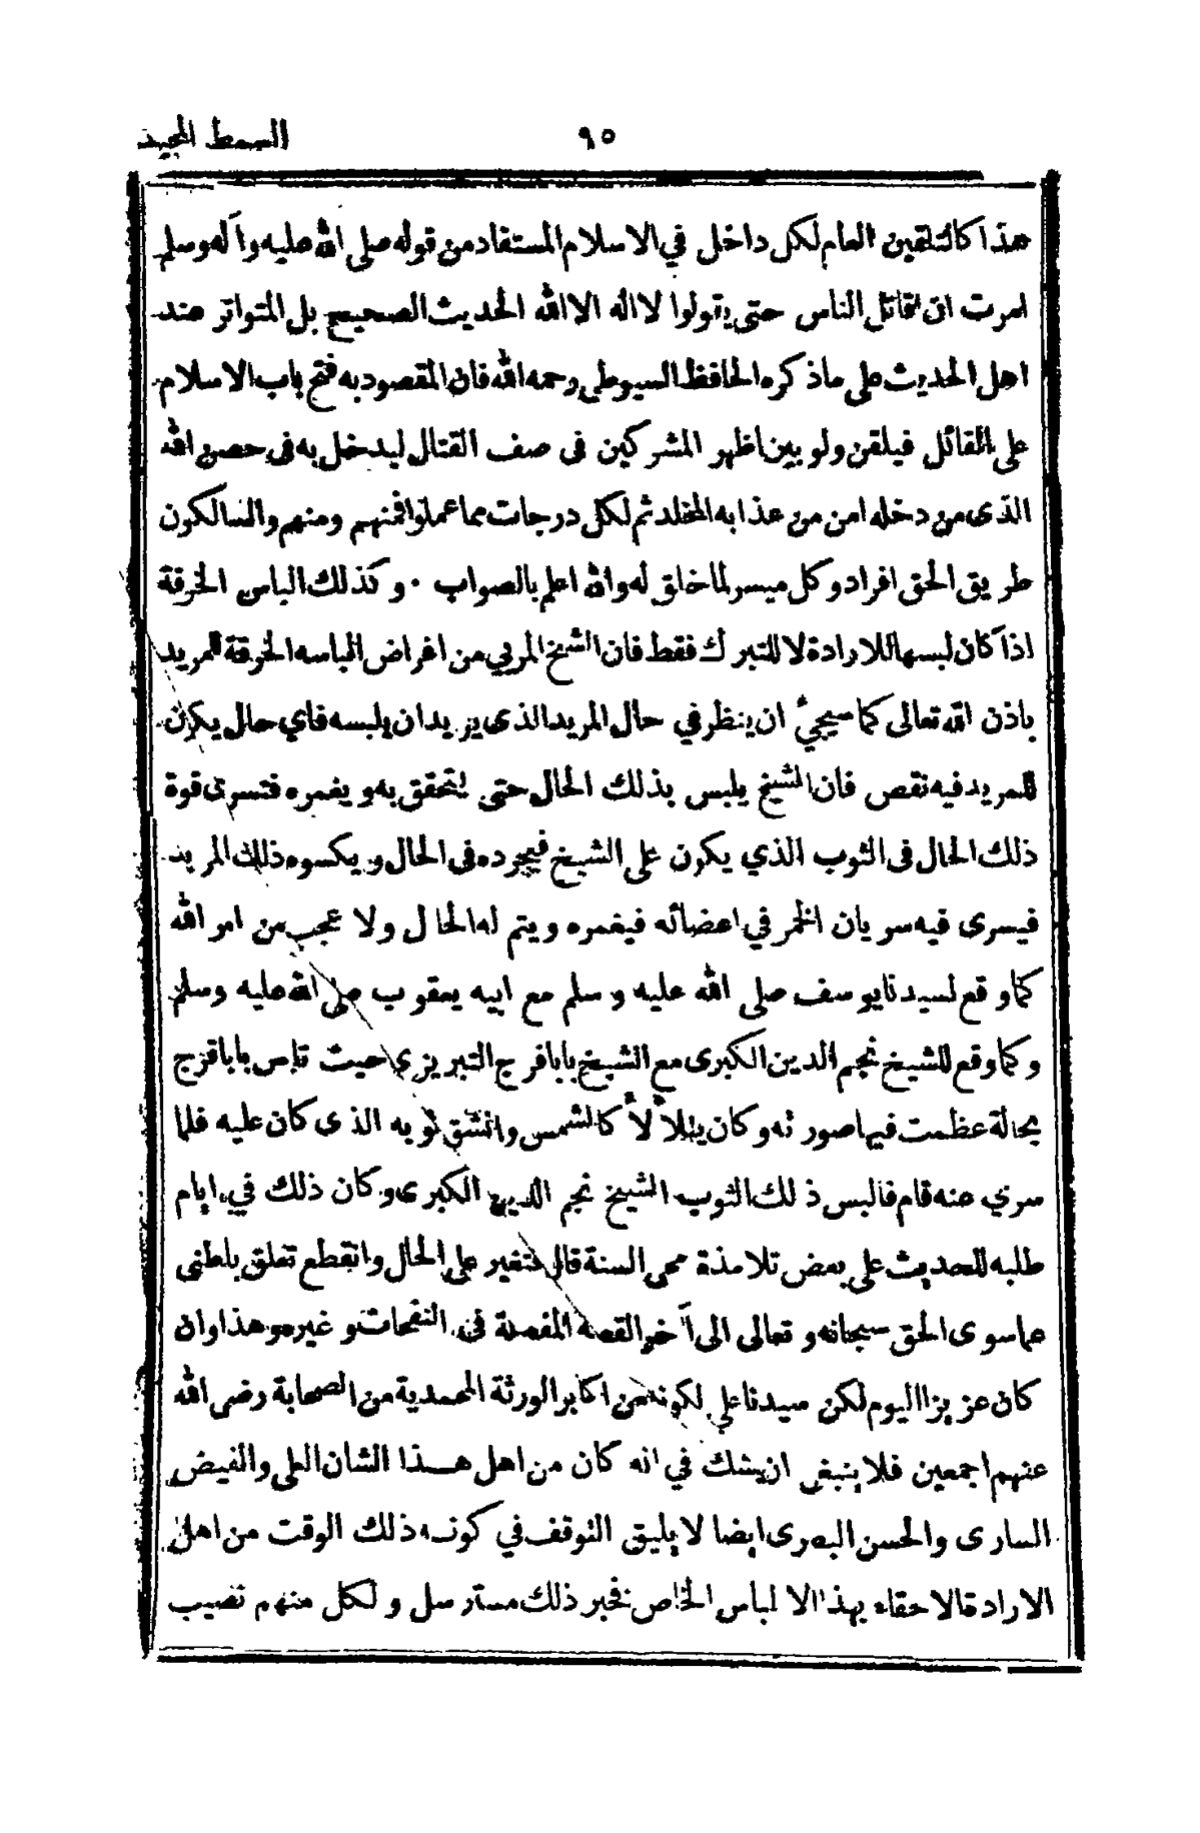 ٩٥
السمط المجيد
هذا كالتلقين العام لكل داخل في الاسلام المستفاد من قوله صلى الله عليه وآله وسلم
امرت ان اقاتل الناس حتى يقولوا لا اله الا الله الحديث الصحيح بل المتواتر عند
اهل الحديث على ما ذكره الحافظ السيوطي رحمه الله فان المقصود به فتح باب الاسلام
على القائل فيلقن ولو بين اظهر المشركين فى صف القتال ليدخل به فى حصن الله
الذى من دخله امن من عذابه المخلد ثم لكل درجات مما عملوا فمنهم ومنهم والسالكون
طريق الحق افراد وكل ميسر لما خلق له والله اعلم بالصواب . وكذلك الباس الخرقة
اذا كان لبسها للارادة لا للتبرك فقط فان الشيخ المربي من اغراض الباسه الخرقة للمريد
باذن الله تعالى كما سيجيء ان ينظر في حال المريد الذى يريد ان يلبسه فاي حال يكون
للمريد فيه نقص فان الشيخ يلبس بذلك الحال حتى يتحقق به و يغمره فتسرى قوة
ذلك الحال فى الثوب الذي يكون على الشيخ فيجرده فى الحال و يكسوه ذلك المريد
فيسرى فيه سريان الخمر في اعضائه فيغمره ويتم له الحال ولا عجب من امر الله
كما وقع لسيدنا يوسف صلى الله عليه وسلم مع ابيه يعقوب صلى الله عليه وسلم
وكما وقع للشيخ نجم الدين الكبرى مع الشيخ بابا فرج التبريزى حيث تلبس بابا فرج
بحالة عظمت فيها صورته وكان يتلألأ كالشمس وانشق ثوبه الذى كان عليه فلما
سري عنه قام فالبس ذلك الثوب الشيخ نجم الدين الكبرى وكان ذلك في ايام
طلبه للحديث على بعض تلامذة محى السنة قال فتغير على الحال وانقطع تعلق باطنى
عما سوى الحق سبحانه و تعالى الى آخر القصة المفصلة فى النفحات و غيره وهذا وان
كان عزيزا اليوم لكن سيدنا علي لكونه من اكابر الورثة المحمدية من الصحابة رضى الله
عنهم اجمعين فلا ينبغى ان يشك في انه كان من اهل هذا الشان العلى والفيض
السارى والحسن البصرى ايضا لا يليق التوقف في كونه ذلك الوقت من اهل
الارادة الاحقاء بهذا الالباس الخاص فخبر ذلك مسترسل و لكل منهم نصيب